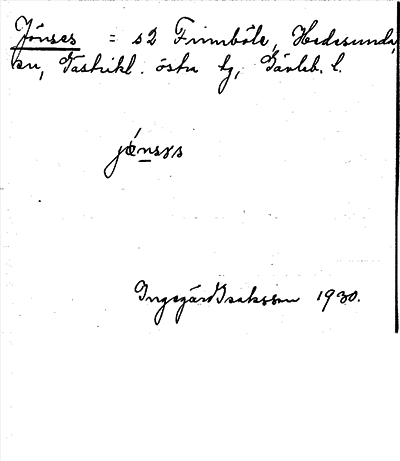 Jönses = s2 Finnböle, Hedesunda
sn, Gästrikl. östra tg, Gävleb. l.
jǿnsɤs
Ingegärd Isaksson 1930.